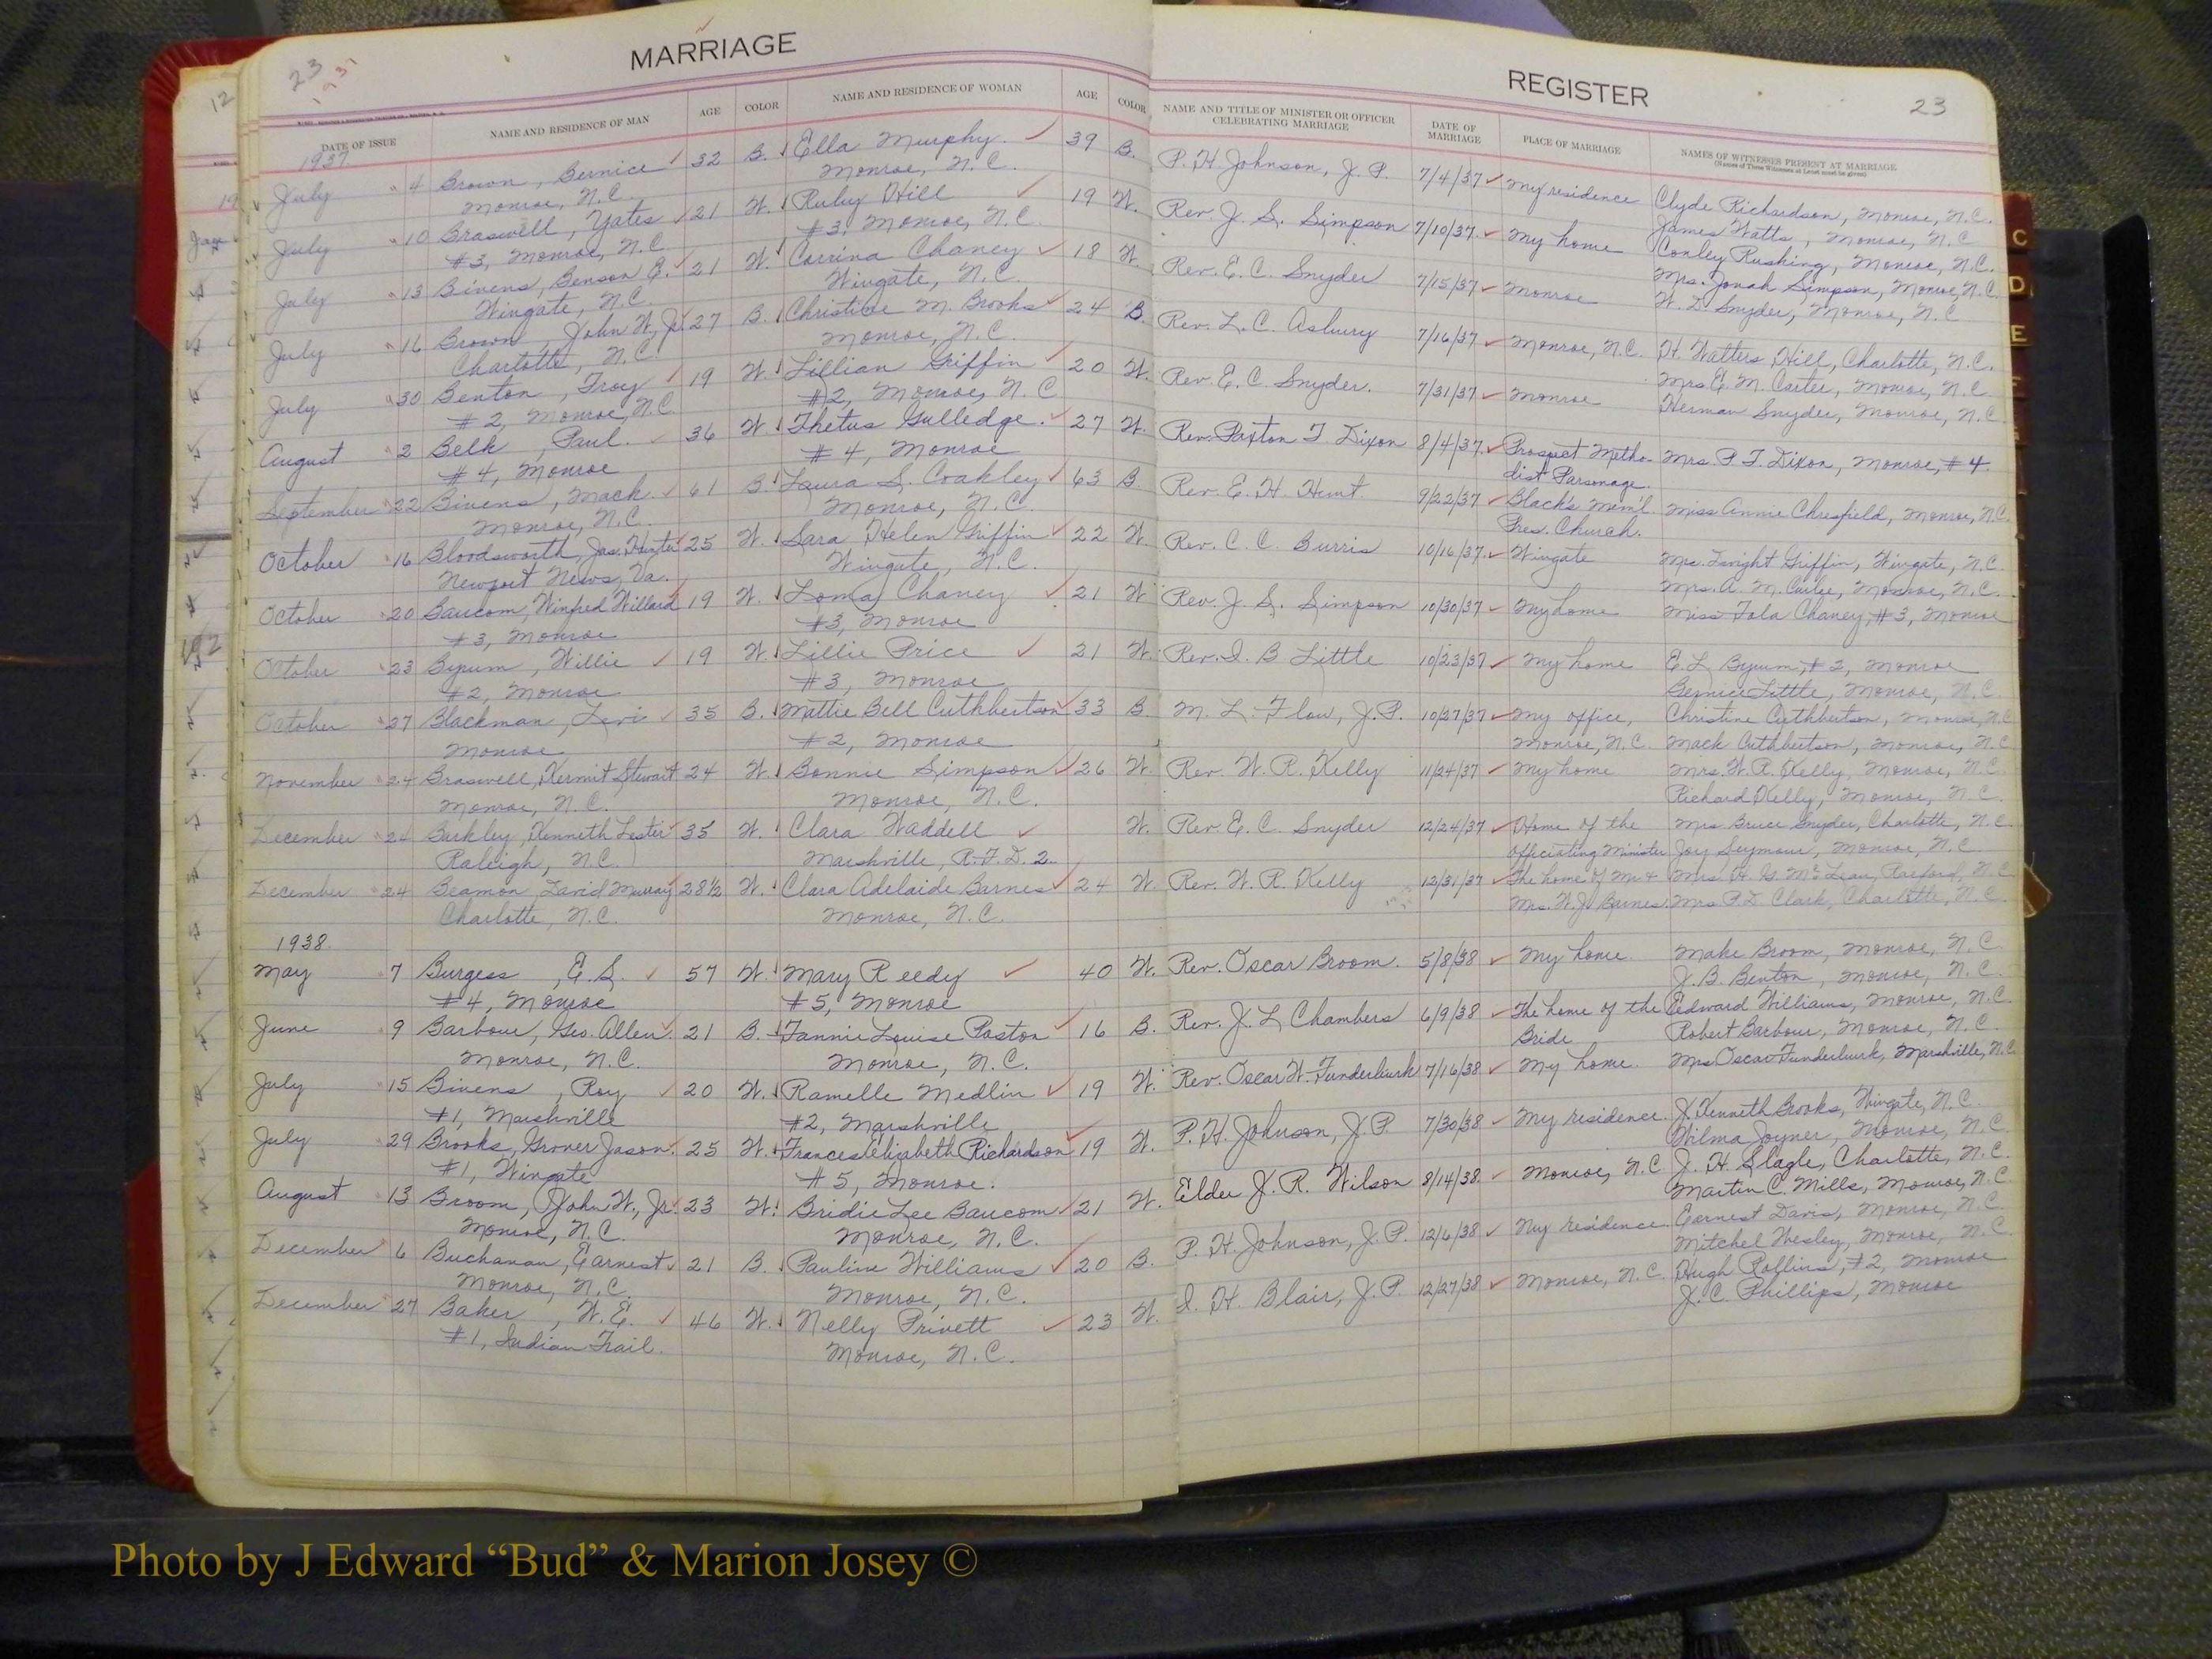 MARRIAGE
23
1937
DATE OF ISSUE NAME AND RESIDENCE OF MAN AGE COLOR NAME AND RESIDENCE OF WOMAN AGE COLOR
1937
July 4 Brown, Bernice 32 B. Ella Murphy 39 B.
Monroe, N.C. Monroe, N.C.
July 10 Braswell, Yates 21 W. Ruby Hill 19 W.
#3, Monroe, N.C. #3, Monroe, N.C.
July 13 Bivens, Benson B. 21 W. Corrina Chaney 18 W.
Wingate, N.C. Wingate, N.C.
July 16 Brown, John W, Jr. 27 B. Christine M. Brooks 24 B.
Charlotte, N.C. Monroe, N.C.
July 30 Benton, Troy 19 W. Lillian Griffin 20 W.
#2, Monroe, N.C. #2, Monroe, N.C
August 2 Belk, Paul. 36 W. Thetus Gulledge. 27 W.
#4, Monroe #4, Monroe
September 22 Bivens, Mack. 61 B. Laura S. Coakley 63 B
Monroe, N.C. Monroe, N.C.
October 16 Bloodsworth, Jas. Hunter 25 W. Sara Helen Griffin 22 W.
Newport News, Va. Wingate, N.C.
October 20 Baucom, Winfred Willard 19 W. Loma Chaney 21 W
#3, Monroe #3, Monroe
October 23 Byrum, Willie 19 W. Lillie Price 21 W.
#2, Monroe #3, Monroe
October 27 Blackman, Levi 35 B. Mattie Bell Cuthbertson 33 B
Monroe #2, Monroe
November 24 Braswell, Kermit Stewart 24 W. Bonnie Simpson 26 W.
Monroe, N.C. Monroe, N.C.
December 24 Barkley, Kenneth Lester 35 W. Clara Waddell W.
Raleigh, N.C. Marshville, R.F.D. 2
December 24 Beamon, David Murray 28 1/2 W. Clara Adelaide Barnes 24 W.
Charlotte, N.C. Monroe, N.C.
1938
May 7 Burgess, E.S. 57 W. Mary Reedy 40 W.
#4, Monroe #5, Monroe
June 9 Barbour, Geo. Allen 21 B. Fannie Louise Paxton 16 B.
Monroe, N.C. Monroe, N.C.
July 15 Bivens, Roy 20 W. Ramelle Medlin 19 W.
#1, Marshville #2, Marshville
July 29 Brooks, Grover Jason. 25 W. Frances Elizabeth Richardson 19 W.
#1, Wingate #5, Monroe.
August 13 Broom, John W., Jr. 23 W. Bridie Lee Baucom 21 W.
Monroe, N.C. Monroe, N.C.
December 6 Buchanan, Earnest 21 B. Pauline Williams 20 B.
Monroe, N.C. Monroe, N.C.
December 27 Baker, W.E. 46 W. Nelly Privett 23 W.
#1, Indian Trail. Monroe, N.C.
REGISTER
23
NAME AND TITLE OF MINISTER OR OFFICER CELEBRATING MARRIAGE DATE OF MARRIAGE PLACE OF MARRIAGE NAMES OF WITNESSES PRESENT AT MARRIAGE
(Names of Three Witnesses at Least must be given)
P. H. Johnson, J. P. 7/4/37 My residence Clyde Richardson, Monroe, N.C.
James Watts, Monroe, N.C
Rev. J. S. Simpson 7/10/37. My home Conley Rushing, Monroe, N.C.
Mrs. Jonah Simpson, Monroe, N.C.
Rev. E. C. Snyder 7/15/37 Monroe W. D. Snyder, Monroe, N.C
Rev. L. C. Asbury 7/16/37 Monroe, N.C. H. Watters Hill, Charlotte, N.C.
Mrs. E. M. Carter, Monroe, N.C
Rev. E. C Snyder. 7/31/37 Monroe Herman Snyder, Monroe, N.C
Rev. Paxton T Dixon 8/4/37. Prospect Metho- Mrs. P T. Dixon, Monroe, #4
dist Parsonage.
Rev. E. H. Hunt. 9/22/37 Black's Mem'l. Miss Annie Chresfield, Monroe, N.C.
Pres. Church.
Rev. C. C. Burris 10/16/37. Wingate Mrs. Dwight Griffin, Wingate, N.C.
Mrs. A. M. Carlee, Monroe, N.C.
Rev. J. S. Simpson 10/30/37 My home Miss Tola Chaney, #3, Monroe
Rev. I. B Little 10/23/37 My home E. L. Byrum, #2, Monroe
Bernice Little, Monroe, N.C.
M. L. Flow, J.P. 10/27/37 My office, Christine Cuthbertson, Monroe, N.C
Monroe, N.C. Mack Cuthbertson, Monroe, N.C
Rev. W. R. Kelly 11/24/37 My home Mrs. W. R. Kelly, Monroe, N.C.
Richard Kelly, Monroe, N.C.
Rev. E. C. Snyder 12/24/37 Home of the Mrs Bruce Snyder, Charlotte, N.C.
officiating Minister Joy Seymour, Monroe, N.C
Rev. W. R. Kelly 12/31/37 The home of Mr & Mrs. H. G. McLean, Raeford, N.C
Mrs. W. J. Barnes Mrs P.D. Clark, Charlotte, N.C
Rev. Oscar Broom. 5/8/38 My home. Make Broom, Monroe, N.C.
J. B. Benton, Monroe, N.C.
Rev. J. L Chambers 6/9/38 The home of the Edward Williams, Monroe, N.C.
Bride Robert Barbour, Monroe, N.C.
Rev. Oscar W. Funderburk 7/16/38 My home. Mrs Oscar Funderburk, Marshville, N.C.
P. H. Johnson, J. P. 7/30/38 My residence. J. Kenneth Brooks, Wingate, N.C.
Wilma Joyner, Monroe, N.C
Elder J. R. Wilson 8/14/38. Monroe, N.C J. H. Slagle, Charlotte, N.C.
Martin C. Mills, Monroe, N.C
P. H. Johnson, J. P. 12/6/38 My residence Earnest Davis, Monroe, N.C.
Mitchel Wesley, Monroe, N.C
I. H. Blair, J. P. 12/27/38 Monroe, N.C. Hugh Rollins, #2, Monroe
J. C. Phillips, Monroe
C
D
E
F
12
19
Photo by J Edward “Bud” & Marion Josey ©